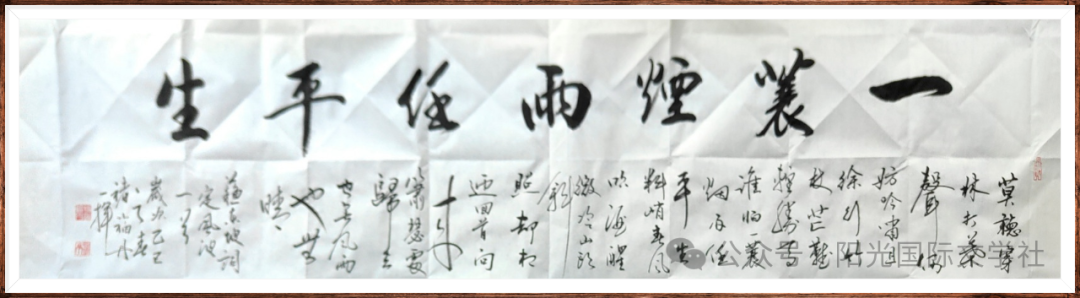 一蓑煙雨任平生
莫聽穿
林打葉
聲何
妨吟嘯且
徐行竹
杖芒鞋
輕勝馬
誰怕一蓑
烟雨任
平生
料峭春風
吹酒醒
微冷山頭
斜
照却相
迎回首向
来
蕭瑟處
歸去
也無風雨
也無
晴
蘇東坡詞
定風波
一首
歲次乙巳
春
公众号 阳光国际学社